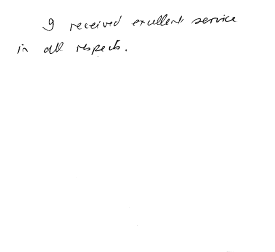 I received excellent service
in all respects.